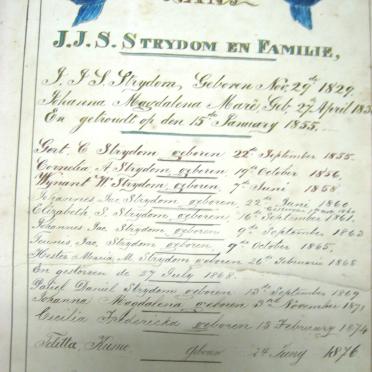 J.J.S. STRYDOM EN FAMILIE,
J. J. S. Strydom, Geboren Nov. 29te 1829.
Johanna Magdalena Mare Geb. 27 April
En getroudt op den 15de January 1855.
Gert C Strydom geboren 22ste September 1855.
Cornelia A Strydom geboren 19de October 1856,
Wynant W Strydom, geboren 7de Juni 1858
Johannes Jac Strydom, geboren 22ste Juni 1860
Elizabeth S. Strydom, geboren 16de September 1861.
Johannes Jac Strydom geboren 9de September 1863
Teunis Jac Strydom, geboren, 9de October 1865,
Hester Maria M. Strydom geboren 26ste Februarie 1868
En gestorven de 27 July 1868.
Daniel Strydom geboren 13de September 1869
Johanna Magdalena geboren 3de November 1871
Cecilia Fredericka geboren 13 February 1874
geboren 24 Juny 1876